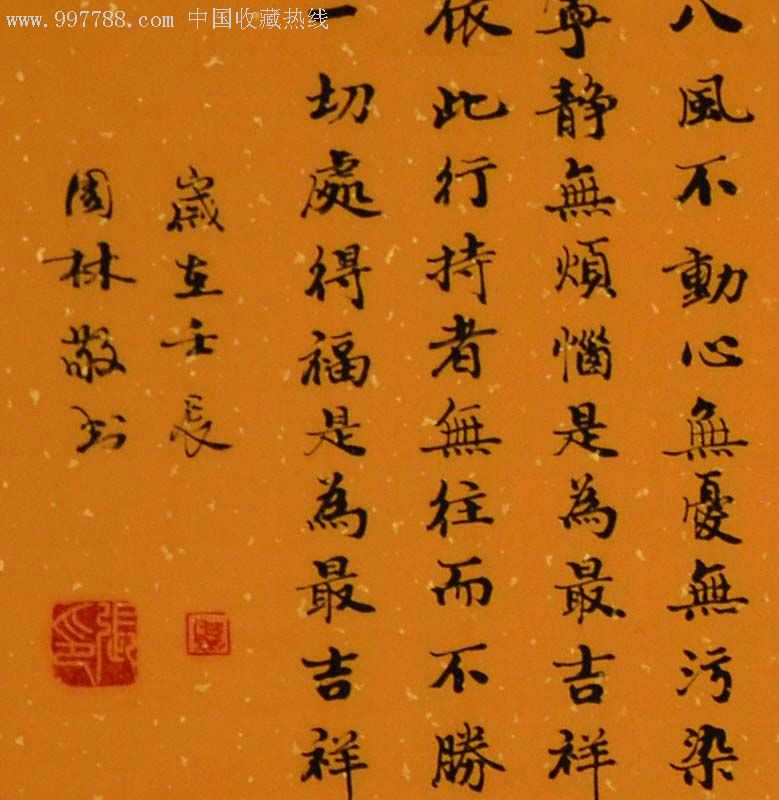 www.997788.com 中国收藏热线
八風不動心無憂無污染
寧靜無煩惱是為最吉祥
依此行持者無往而不勝
一切處得福是為最吉祥
歲在壬辰
國林敬書
張
印